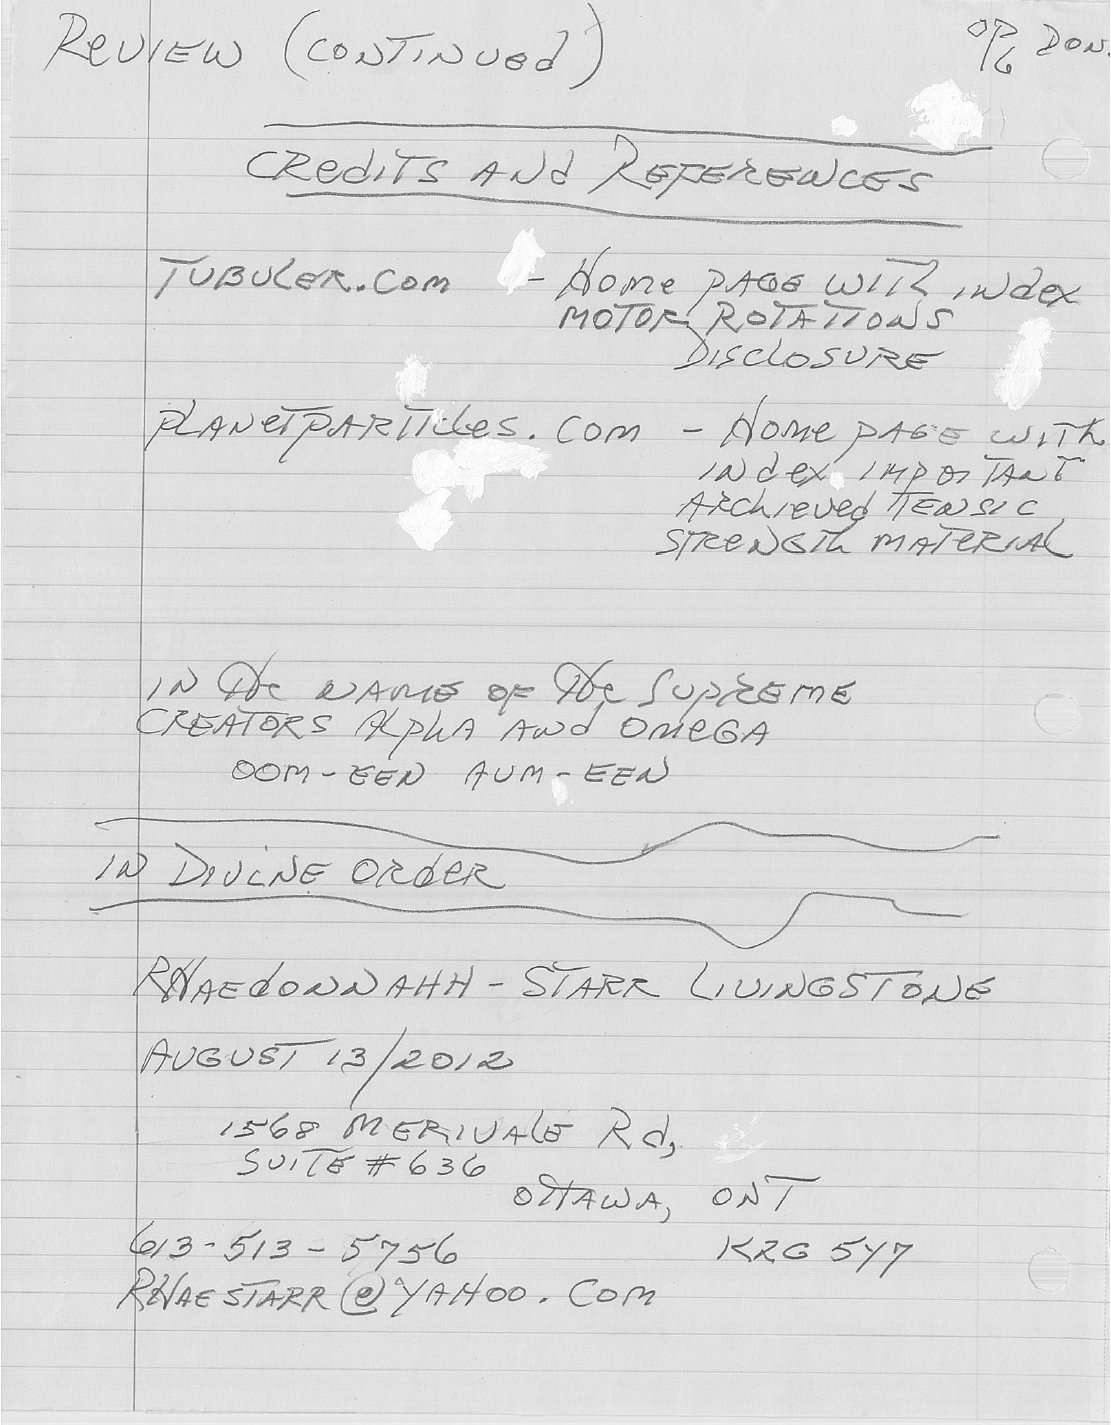 REVIEW (CONTINUED)
DON.
CREDITS AND REFERENCES
TUBULER.COM - HOME PAGE WITH INDEX
MOTOR ROTATIONS
DISCLOSURE
PLANETPARTICLES.COM - HOME PAGE WITH
INDEX IMPORTANT
ARCHIEVED TENSIC
STRENGTH MATERIAL
IN THE NAME OF THE SUPREME
CREATORS ALPHA AND OMEGA
OOM-EEN AUM-EEN
IN DIVINE ORDER
RHAEDONNAHH - STARR LIVINGSTONE
AUGUST 13/2012
1568 MERIVALE RD,
SUITE #636
OTTAWA, ONT
613-513-5756 K2G 5Y7
RHAESTARR@YAHOO.COM